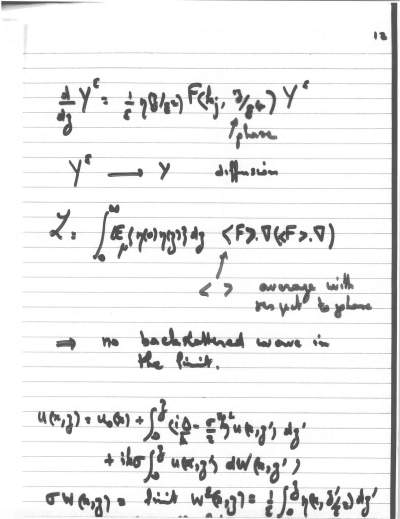 12
d/dz Y^ε = 1/ε η(z/ε²) F(k_j, z/ε²) Y^ε
phase
Y^ε → Y diffusion
L = ∫_0^∞ E_μ{η(0)η(z)} dz <F>.∇(<F>.∇)
< > average with
respect to phase
⇒ no backscattered wave in
the limit.
u(x,z) = u_0(x) + ∫_0^z (iΔ/k - σ²/2) u(x,z') dz'
+ ikσ ∫_0^z u(x,z') dW(x,z')
σW(x,z) = limit W^ε(x,z) = 1/ε ∫_0^z η(x, z'/ε²) dz'